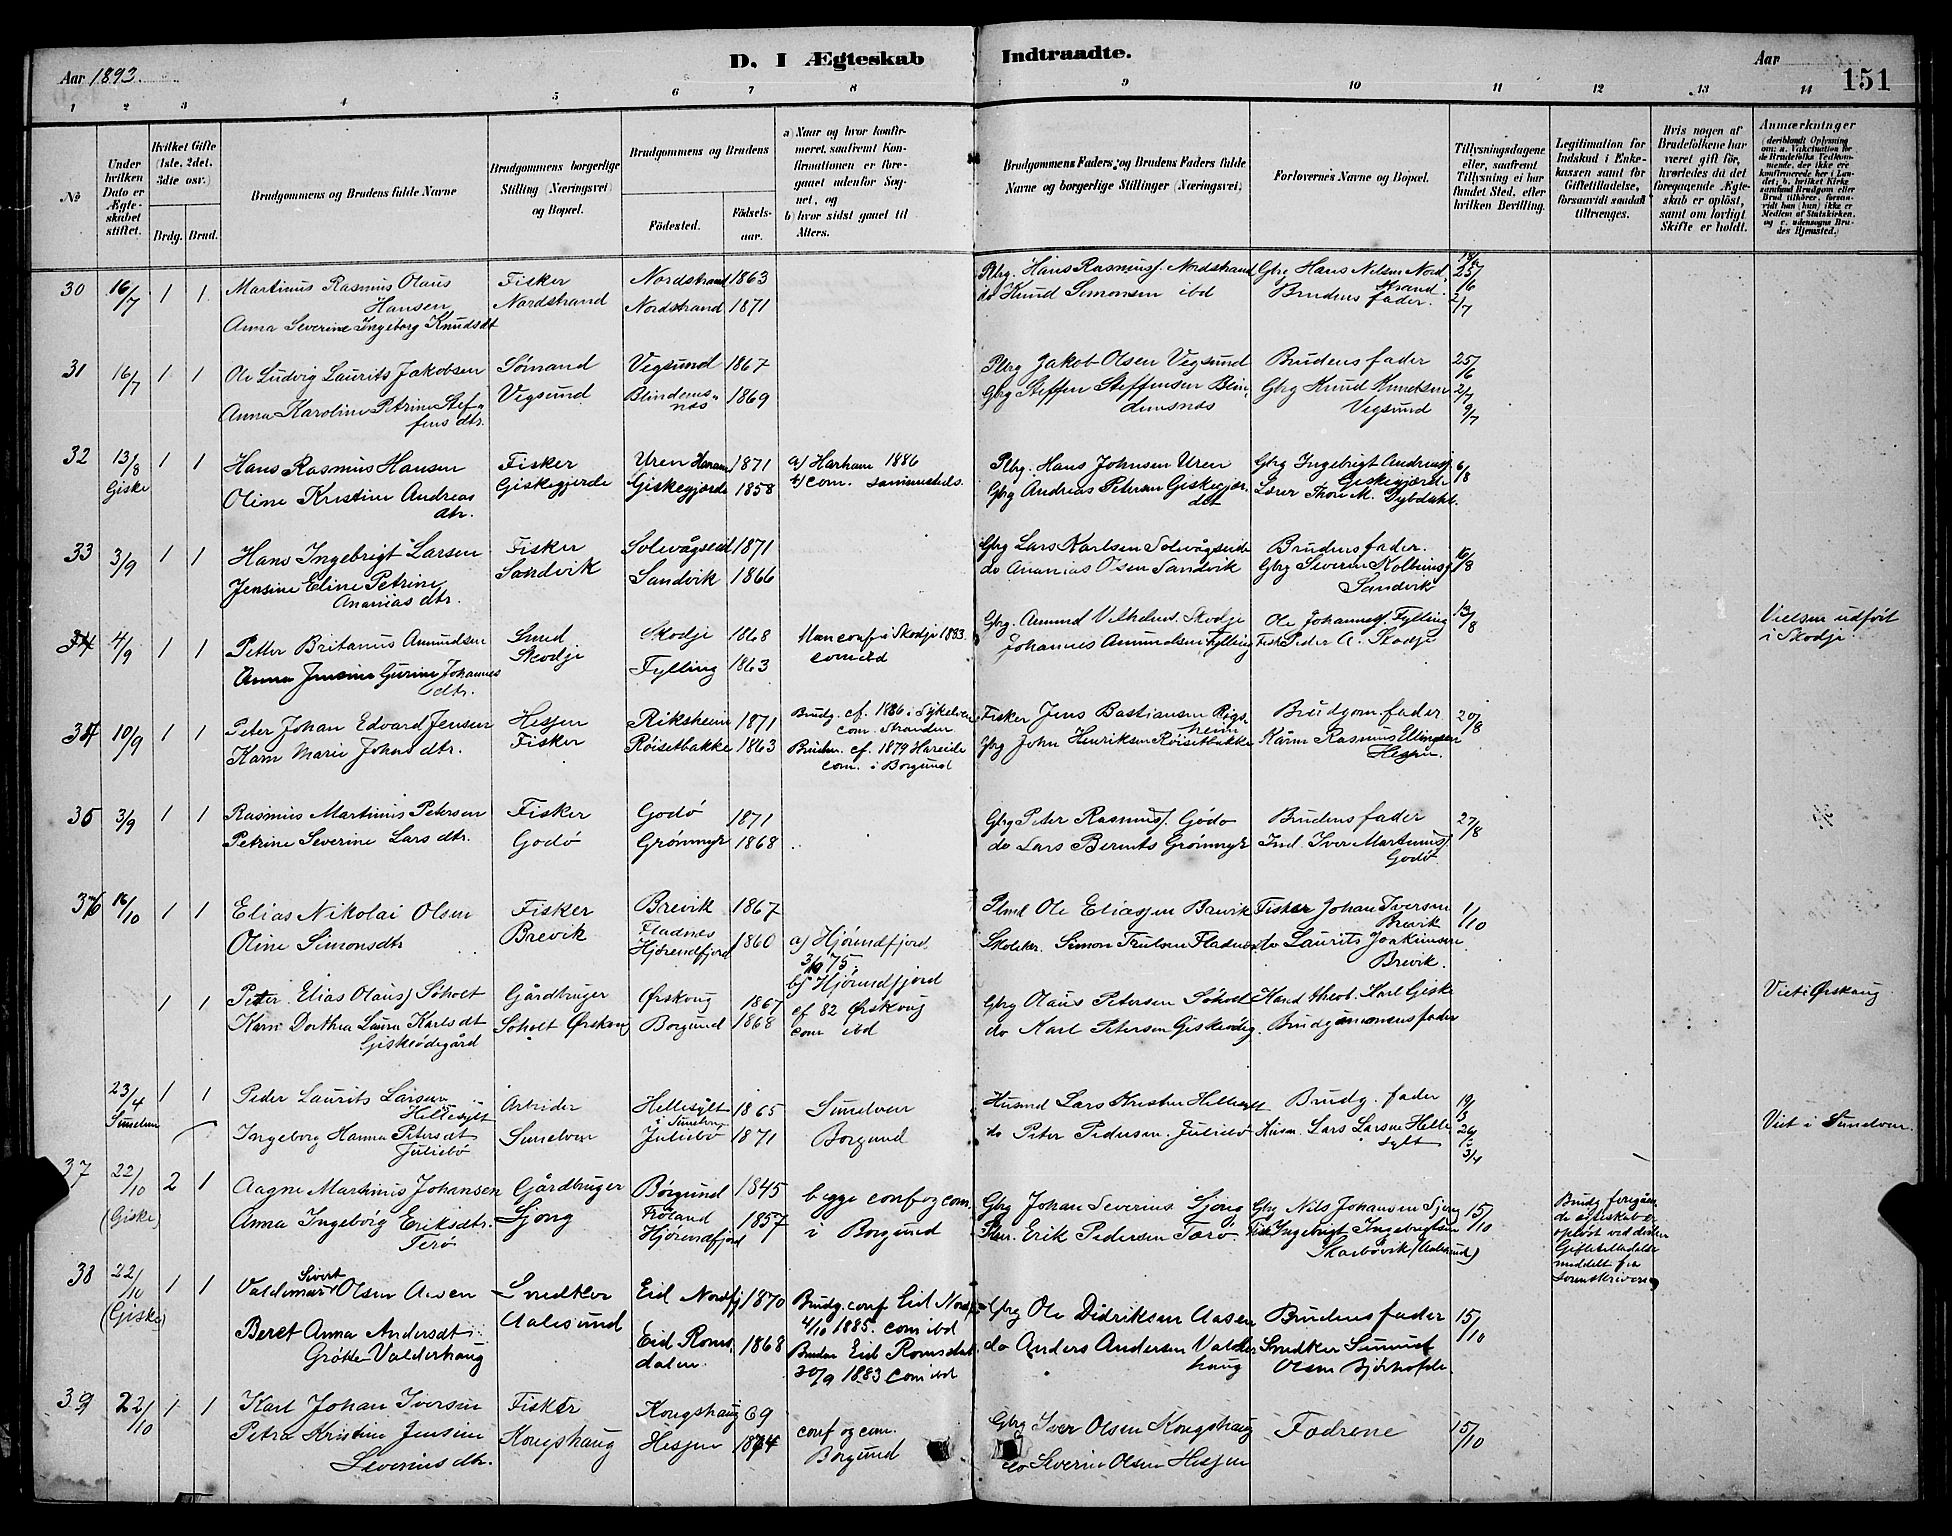 Aar 1893.
D. I Ægteskab Indtraadte.
Aar
151
1 2 3 4 5 6 7 8 9 10 11 12 13 14
No
Under hvilken Dato er Ægteskabet stiftet.
Hvilket Gifte (1ste, 2det, 3die osv.)
Brdg. Brud.
Brudgommens og Brudens fulde Navne
Brudgommens borgerlige Stilling (Næringsvei) og Bopæl.
Brudgommens og Brudens
Fødested. Fødselsaar.
a) Naar og hvor konfirmeret, saafremt Konfirmationen er foregaaet udenfor Sognet, og
b) hvor sidst gaaet til Alters.
Brudgommens Faders og Brudens Faders fulde Navne og borgerlige Stillinger (Næringsvei)
Forlovernes Navne og Bopæl.
Tillysningsdagene eller, saafremt Tillysning ei har fundet Sted, efter hvilken Bevilling.
Legitimation for Indskud i Enkekassen samt for Giftetilladelse, forsaavidt saadan tiltrænges.
Hvis nogen af Brudefolkene har været gift før, hvorledes da det foregaaende Ægteskab er opløst, samt om lovligt Skifte er holdt.
Anmærkninger
(deriblandt Oplysning om: a. Vakcination for de Brudefolks Vedkommende, der ikke ere konfirmerede her i Landet; b. hvilket Kirkesamfund Brudgom eller Brud tilhører, forsaavidt han (hun) ikke er Medlem af Statskirken, og c. udensogns Brudes Hjemsted.)
30 16/7 1 1 Martinus Rasmus Olaus Fisker Nordstrand 1863 Pbrg. Hans Rasmuss. Nordstrand Gbrg Hans Nilsen Nordstrand 25/6
Hansen Nordstrand Nordstrand 1871 do Knud Simonsen ibd Brudens fader. 2/7
Anna Severine Ingeborg Knudsdt
31 16/7 1 1 Ole Ludvig Laurits Jakobsen Sømand Vegsund 1867 Pbrg Jakob Olsen Vegsund Brudens fader 25/6
Anna Karoline Petrine Steffensdtr. Vegsund Blindemsnes 1869 Gbrg Steffen Steffensen Blindemsnes Gbrg Knud Knudsen Vegsund 2/7 9/7
32 13/8 1 1 Hans Rasmus Hansen Fisker Uren Haram 1871 a) Harham 1886 Pbrg. Hans Johnsen Uren Gbrg Ingebrigt Andreas. Giskegjerde 6/8
Giske Oline Kristine Andreasdtr. Giskegjerde Giskegjerde 1858 b) com. sammesteds. Gbrg Andreas Petersen Giskegjerdet Lærer Thore M. Dybdahl.
33 3/9 1 1 Hans Ingebrigt Larsen Fisker Solevågseid 1871 Gbrg Lars Karlsen Solevågseide Brudens fader.
Jensine Eline Petrine Ananiasdtr. Sandvik Sandvik 1866 do Ananias Olsen Sandvik Gbrg Severin Sandvik
34 4/9 1 1 Petter Britanus Amundsen Smed Skodje 1868 Man conf. i Skodje 1883. Gbrg. Amund Vilhelms. Skodje Ole Johanness. Fylling 13/8 Vielsen udført i Skodje.
Anna Jensine Gurine Johannesdtr. Skodje Fylling 1863 com ibd Johannes Amundsen Fylling Fisk. Peder A. Skodje
34 10/9 1 1 Peter Johan Edvard Jensen Hesjen Riksheim 1871 Brudg. cf. 1886 i Sykelven com. Stranden Fisker Jens Bastiansen Rigsheim Brudgom. fader 20/8
Karn Marie Johnsdtr. Fisker Røisetbakke 1863 Bruden. cf. 1879 Hareide com. i Borgund Gbrg John Henriksen Røisetbakke Kårm Rasmus Ellingsen Hesjen.
35 3/9 1 1 Rasmus Martinus Petersen Fisker Godø 1871 Gbrg Peter Rasmuss. Godø Brudens fader 27/8
Petrine Severine Larsdtr. Godø Grønmyr 1868 do Lars Bernts Grønmyr Ind. Iver Martinuss. Godø
36 16/10 1 1 Elias Nikolai Olsen Fisker Brevik 1867 Plmd Ole Eliassen Brevik Fisker Johan Iversen Brevik 1/10
Oline Simonsdtr Brevik Fladnes Hjørendfjord 1860 a) Hjørundfjord. 3/10 75. b) Hjørundfjord Skolekr. Simon Trulsen Fladnes do Laurits Joakimsen Brevik.
1 1 Peter Elias Olauss Søholt Gårdbruger Ørskoug 1867 cf 82 Ørskoug Gbrg Olaus Petersen Søholt Kand. theol. Karl Giske Viet i Ørskoug
Karn Dorthea Laura Karlsdt Giskeødegård Søholt Ørskoug Borgund 1868 com ibd do Karl Petersen Giskeødeg. Brudgommens fader
23/4 1 1 Peder Laurits Larsen Hellesylt Arbeider Hellesylt i Sunelven 1865 Sunelven Husmd Lars Kristen Hellesylt Brudg. fader 19/3
Sunelven Ingeborg Hanna Petersdt Juliebø Sunelven Juliebø 1871 Borgund do Peter Pedersen Juliebø Husm. Lars Larsen Hellesylt 26/3 3/4 Viet i Sunelven.
37 22/10 2 1 Aagne Martinus Johansen Gårdbruger Borgund 1845 begge conf og com. Gbrg Johan Severins Ljong Gbrg Nils Johansen Ljong 15/10 Brudg foregåande egteskab opløst ved døden Giftetilladelse meddelt fra Sorenskriveren
(Giske) Anna Ingeborg Eriksdtr. Terø Ljong Froland Hjørendfjord 1857 i Borgund Erik Pedersen Terø Fisk. Ingebrigt Ingebrigtsen Skarbøvik (Aalesund)
38 22/10 1 1 Valdemar Sivert Olsen Aasen Snedker Eid Nordfj 1870 Brudg. conf Eid Nordfj. 4/10 1885. com ibd Gbrg Ole Didriksen Aasen Brudens fader 15/10
(Giske) Beret Anna Andersdt. Grøtte Valderhaug Aalesund Eid Romsdalen 1868 Bruden Eid Romsdal. 30/9 1883 com ibd do Anders Andersen Valderhaug Snedker Simund Olsen
39 22/10 1 1 Karl Johan Iversen Fisker Kongshaug 69 conf og com. Gbrg Iver Olsen Kongshaug Fædrene 15/10
Petra Kristine Jensine Severinsdtr. Kongshaug Hesjen 1874 Borgund do Severin Olsen Hesjen